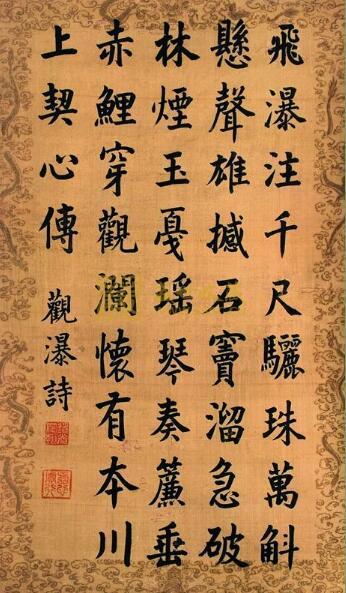 飛瀑注千尺驪珠萬斛
懸聲雄撼石竇溜急破
林煙玉戛瑶琴奏簾垂
赤鯉穿觀瀾懷有本川
上契心傳
觀瀑詩